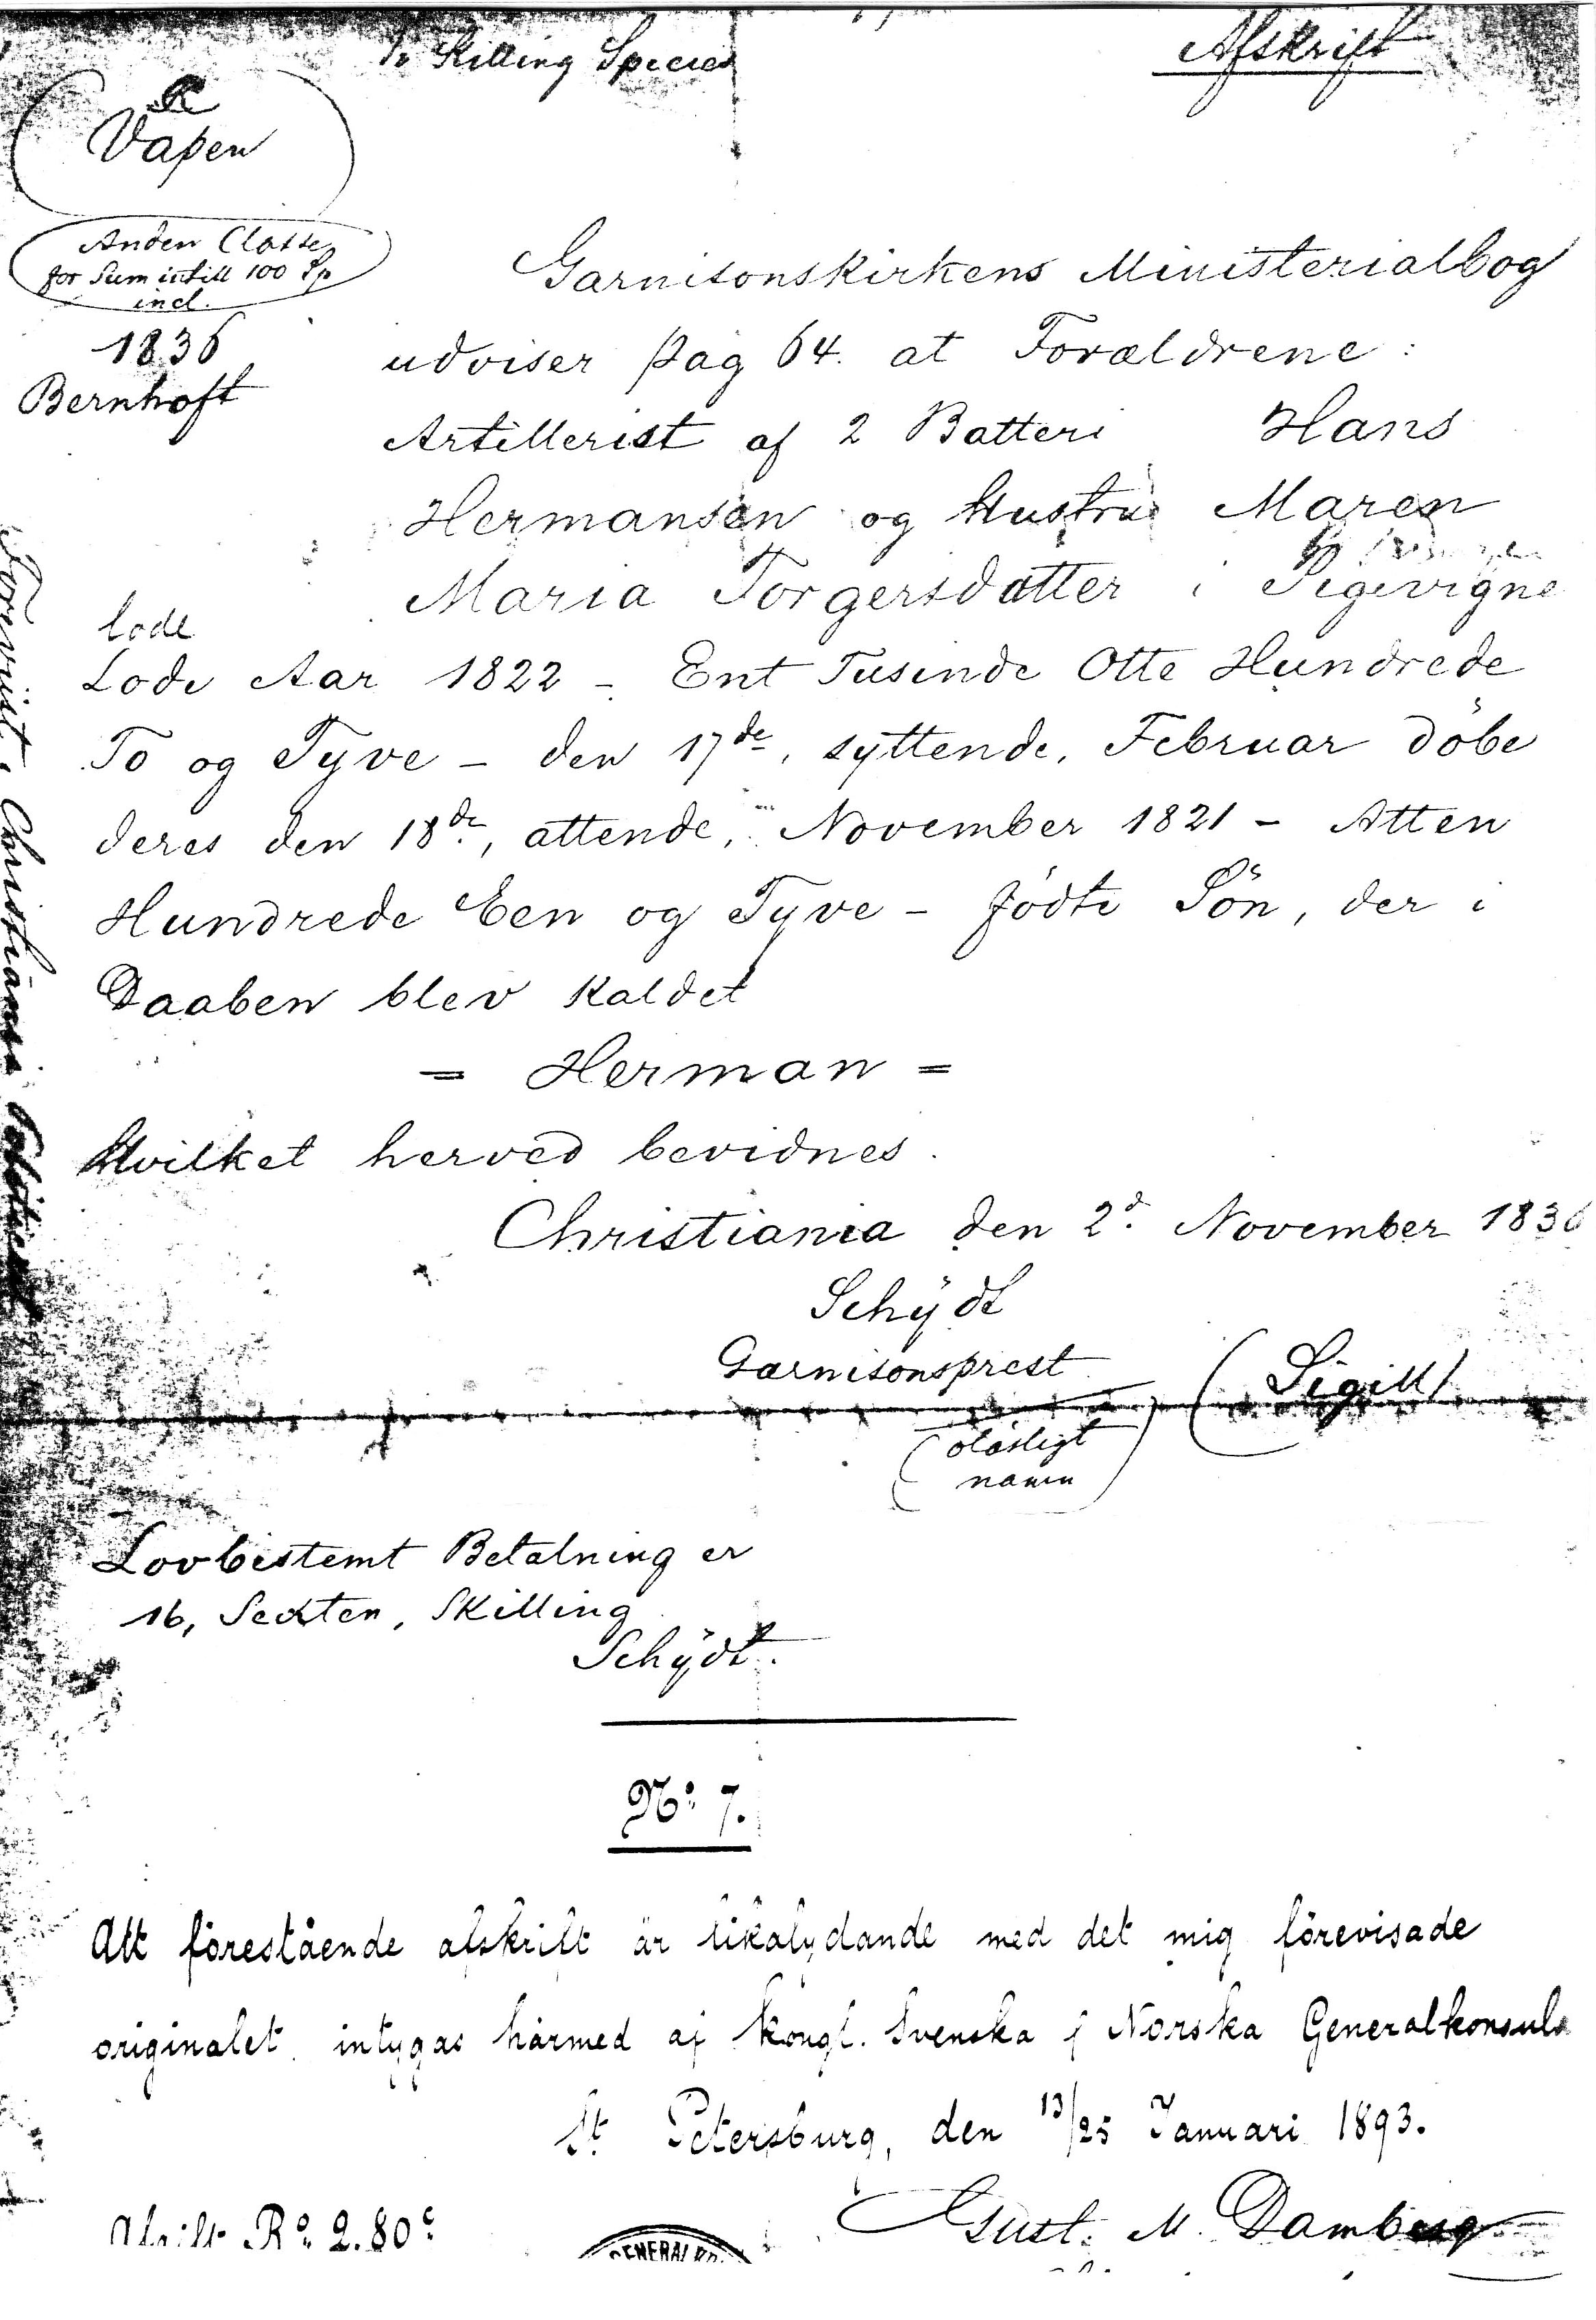 Skilling Species
Afskrift
Vapen
Anden Classe
for Sum intill 100 Sp
incl.
1836
Bernhoft
Garnisonskirkens Ministerialbog
udviser pag 64. at Forældrene:
Artillerist af 2 Batteri Hans
Hermansen og Hustru Maren
Maria Torgersdatter i Pigevigne
lode
Lode Aar 1822 - Ent Tusinde Otte Hundrede
To og Tyve - den 17de, syttende, Februar döbe
deres den 18de, attende, November 1821 - Atten
Hundrede Een og Tyve - födte Sön, der i
Daaben blev kaldet
= Herman =
Hvilket herved bevidnes.
Christiania den 2d. November 1836
Schÿdt
Garnisonsprest
(Sigill)
(oläsligt
namn)
Lovbestemt Betalning er
16, Sexten, Skilling
Schÿdt.
No 7.
Att förestående afskrift är likalydande med det mig förevisade
originalet intygas härmed af Kongl. Svenska o Norska Generalkonsula
St. Petersburg, den 13/25 Januari 1893.
Gust. M. Damberg
Afgift Ro 2.80c
GENERALKO
Christiania